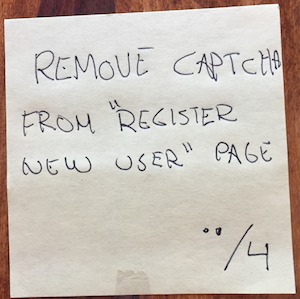 REMOVE CAPTCHA
FROM "REGISTER
NEW USER" PAGE
¨/4